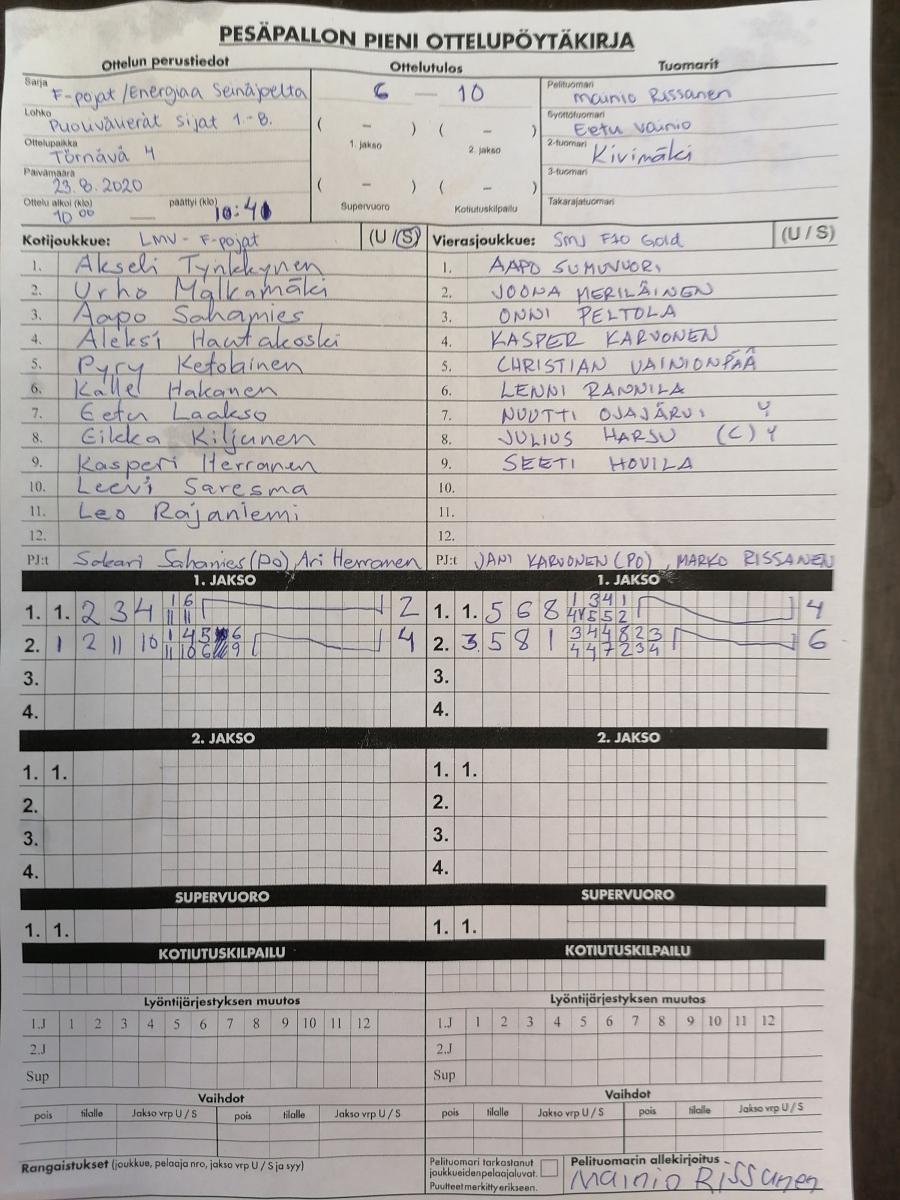 PESÄPALLON PIENI OTTELUPÖYTÄKIRJA
Ottelun perustiedot
Sarja F-pojat/Energiaa Seinäjoelta
Lohko Puolivälierät sijat 1-8.
Ottelupaikka Törnävä 4
Päivämäärä 23.8.2020
Ottelu alkoi (klo) 10 00 — päättyi (klo) 10:41
Ottelutulos
6 — 10
( – ) ( – )
1. jakso 2. jakso
( – ) ( – )
Supervuoro Kotiutuskilpailu
Tuomarit
Pelituomari Mainio Rissanen
Syöttötuomari Eetu Vainio
2-tuomari Kivimäki
3-tuomari
Takarajatuomari
Kotijoukkue: LMV - F-pojat (U/S)
1. Akseli Tynkkynen
2. Urho Malkamäki
3. Aapo Sahamies
4. Aleksi Hautakoski
5. Pyry Ketolainen
6. Kalle Hakanen
7. Eetu Laakso
8. Eikka Kiljunen
9. Kasperi Herranen
10. Leevi Saresma
11. Leo Rajaniemi
12.
PJ:t Sakari Sahamies (PO) Ari Herranen
Vierasjoukkue: SMJ F10 Gold (U/S)
1. AAPO SUMUVUORI
2. JOONA MERILÄINEN
3. ONNI PELTOLA
4. KASPER KARVONEN
5. CHRISTIAN VAINIONPÄÄ
6. LENNI RANNILA
7. NUUTTI OJAJÄRVI Y
8. JULIUS HARSU (C) Y
9. SEETI HOVILA
10.
11.
12.
PJ:t JANI KARVONEN (PO), MARKO RISSANEN
1. JAKSO
1. 1. 2 3 4 1 6 2
11 11
2. 1 2 11 10 1 4 5 6 4
11 10 6 9
3.
4.
1. JAKSO
1. 1. 5 6 8 1 3 4 1 4
4 5 5 2
2. 3. 5 8 1 3 4 4 8 2 3 6
4 4 7 2 3 4
3.
4.
2. JAKSO
1. 1.
2.
3.
4.
2. JAKSO
1. 1.
2.
3.
4.
SUPERVUORO
1. 1.
SUPERVUORO
1. 1.
KOTIUTUSKILPAILU
KOTIUTUSKILPAILU
Lyöntijärjestyksen muutos
1.J 1 2 3 4 5 6 7 8 9 10 11 12
2.J
Sup
Lyöntijärjestyksen muutos
1.J 1 2 3 4 5 6 7 8 9 10 11 12
2.J
Sup
Vaihdot
pois tilalle Jakso vrp U/S pois tilalle Jakso vrp U/S
Vaihdot
pois tilalle Jakso vrp U/S pois tilalle Jakso vrp U/S
Rangaistukset (joukkue, pelaaja nro, jakso vrp U/S ja syy)
Pelituomari tarkastanut
joukkueiden pelaajaluvat.
Puutteet merkitty erikseen.
Pelituomarin allekirjoitus
Mainio Rissanen